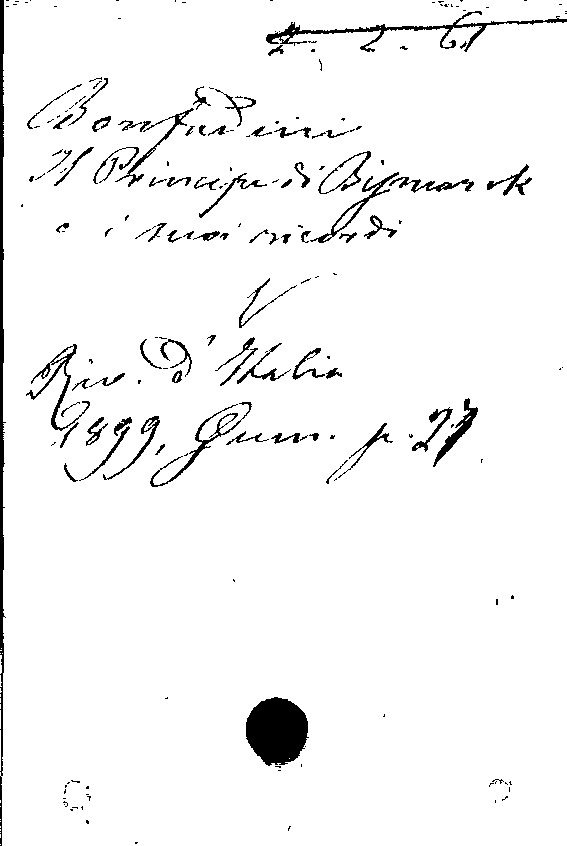 2. 2. 61
Bonfadini
Il Principe di Bismarck
e i suoi ricordi
Riv. d'Italia
1899, Genn. p. 27